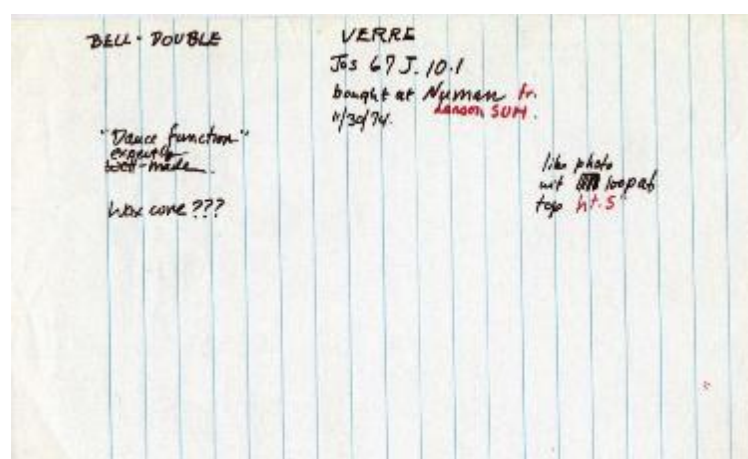 BELL - DOUBLE
VERRE
Jos 67 J. 10.1
bought at Numan fr.
SUM.
11/30/74.
"Dance function"
expertly
well-made
Wax core ???
like photo
wit loop at
top ht. 5"